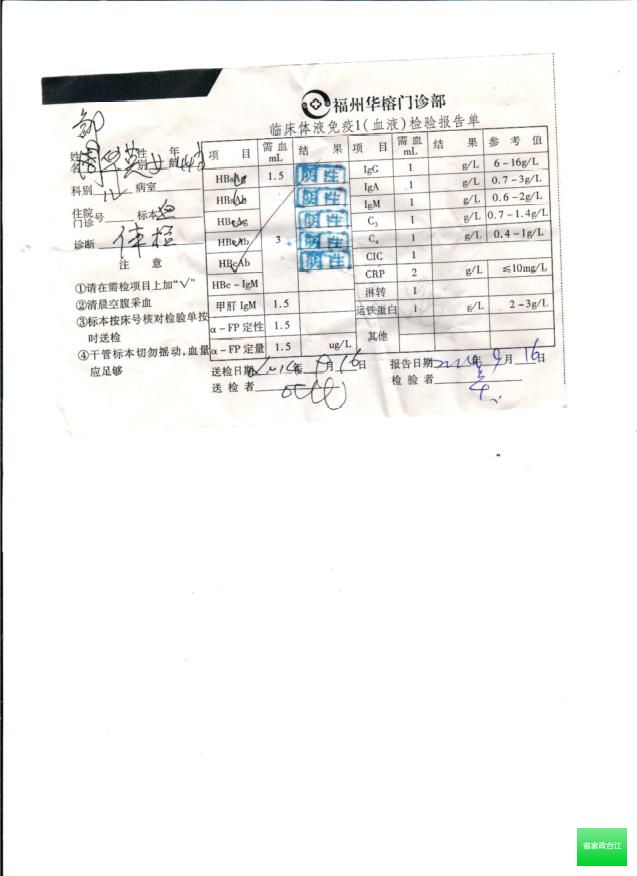 福州华榕门诊部
临床体液免疫1(血液)检验报告单
姓名 性别 女 年龄
科别 病室
住院门诊号 标本 血
诊断 体检
注 意
①请在需检项目上加“√”
②清晨空腹采血
③标本按床号核对检验单按时送检
④干管标本切勿摇动,血量应足够
项 目 需血mL 结 果 项 目 需血mL 结 果 参 考 值
HBsAg 1.5 阴性 IgG 1 g/L 6-16g/L
HBsAb 阴性 IgA 1 g/L 0.7-3g/L
HBeAg 阴性 IgM 1 g/L 0.6-2g/L
HBeAb 3 阴性 C₃ 1 g/L 0.7-1.4g/L
HBcAb 阴性 C₄ 1 g/L 0.4-1g/L
HBc-IgM CIC 1
甲肝 IgM 1.5 CRP 2 g/L ≤10mg/L
α-FP 定性 1.5 淋转 1
α-FP 定量 1.5 ug/L 运铁蛋白 1 g/L 2-3g/L
其他
送检日期 年 9月16日 报告日期 年9月16日
送 检 者 检 验 者
省家政台江